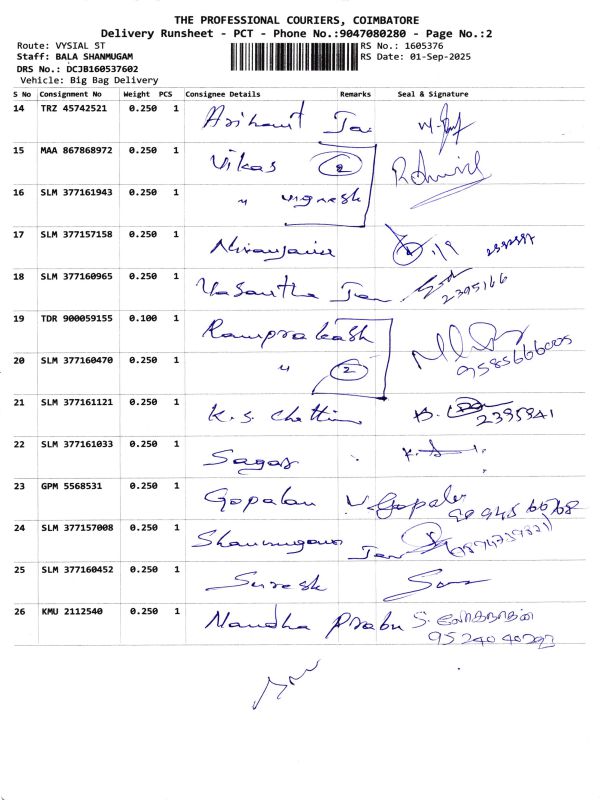 THE PROFESSIONAL COURIERS, COIMBATORE
Delivery Runsheet - PCT - Phone No.:9047080280 - Page No.:2
Route: VYSIAL ST RS No.: 1605376
Staff: BALA SHANMUGAM RS Date: 01-Sep-2025
DRS No.: DCJB160537602
Vehicle: Big Bag Delivery
S No Consignment No Weight PCS Consignee Details Remarks Seal & Signature
14 TRZ 45742521 0.250 1 Arihant
15 MAA 867868972 0.250 1 Vikas 2
16 SLM 377161943 0.250 1 " vignesh
17 SLM 377157158 0.250 1 Niranjana
18 SLM 377160965 0.250 1 Vasantha 2395166
19 TDR 900059155 0.100 1 Ramprakash
20 SLM 377160470 0.250 1 " 2 9585666005
21 SLM 377161121 0.250 1 K. S. Chetti 2395841
22 SLM 377161033 0.250 1 Sagar
23 GPM 5568531 0.250 1 Gopalan V Gopalan
24 SLM 377157008 0.250 1 Shanmugam
25 SLM 377160452 0.250 1 Suresh
26 KMU 2112540 0.250 1 Nandha Prabu S.